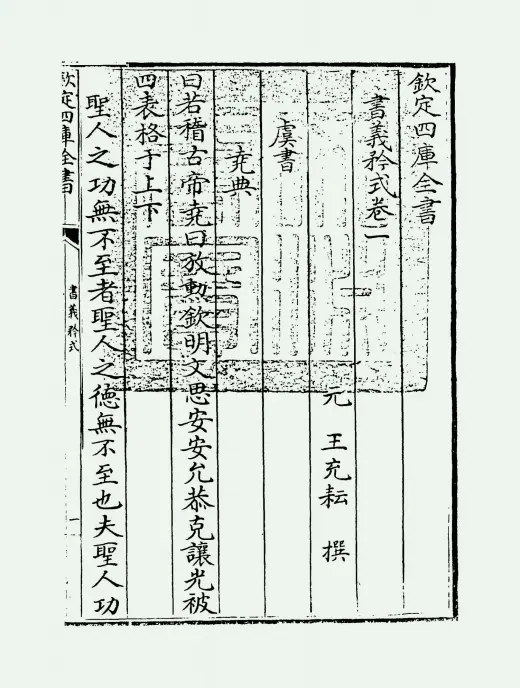 欽定四庫全書
書義矜式卷一
元 王充耘 撰
虞書
堯典
曰若稽古帝堯曰放勲欽明文思安安允恭克讓光被
四表格于上下
聖人之功無不至者聖人之徳無不至也夫聖人功
欽定四庫全書
書義矜式
一